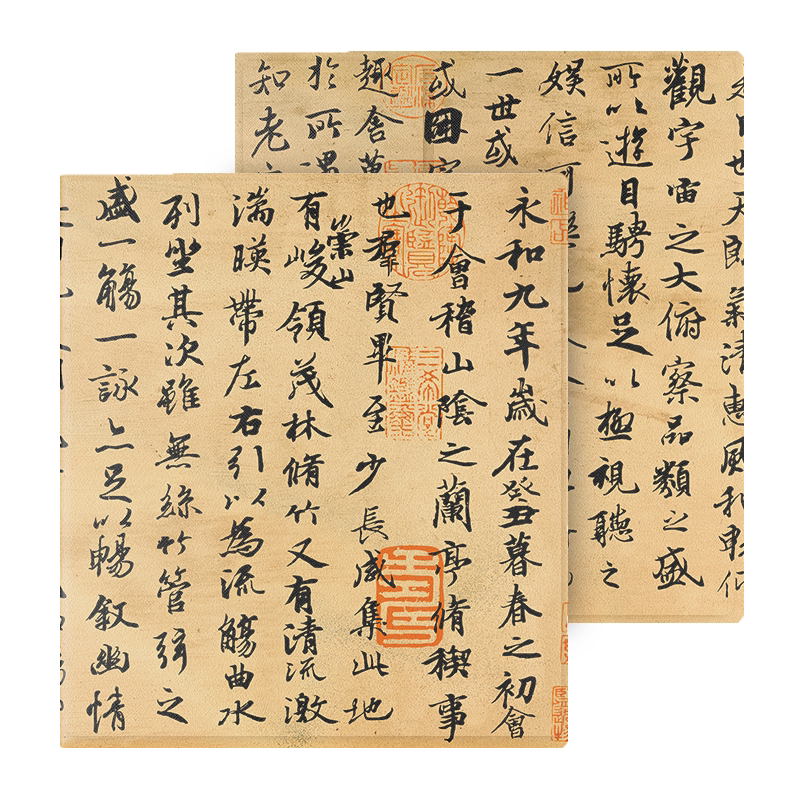 永和九年歲在癸丑暮春之初會
于會稽山陰之蘭亭脩稧事
也羣賢畢至少長咸集此地
有崇山峻領茂林脩竹又有清流激
湍暎帶左右引以為流觴曲水
列坐其次雖無絲竹管弦之
盛一觴一詠亦足以暢敘幽情
也天朗氣清惠風和暢仰
觀宇宙之大俯察品類之盛
所以遊目騁懷足以極視聽之
娛信可
一世或
或因寄
趣舍萬
於所遇
知老
三希堂精鑑璽